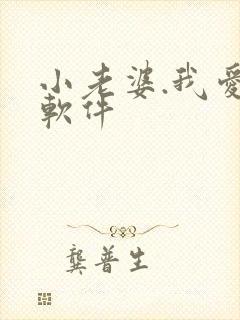 小老婆.我愛
軟件
龔普生